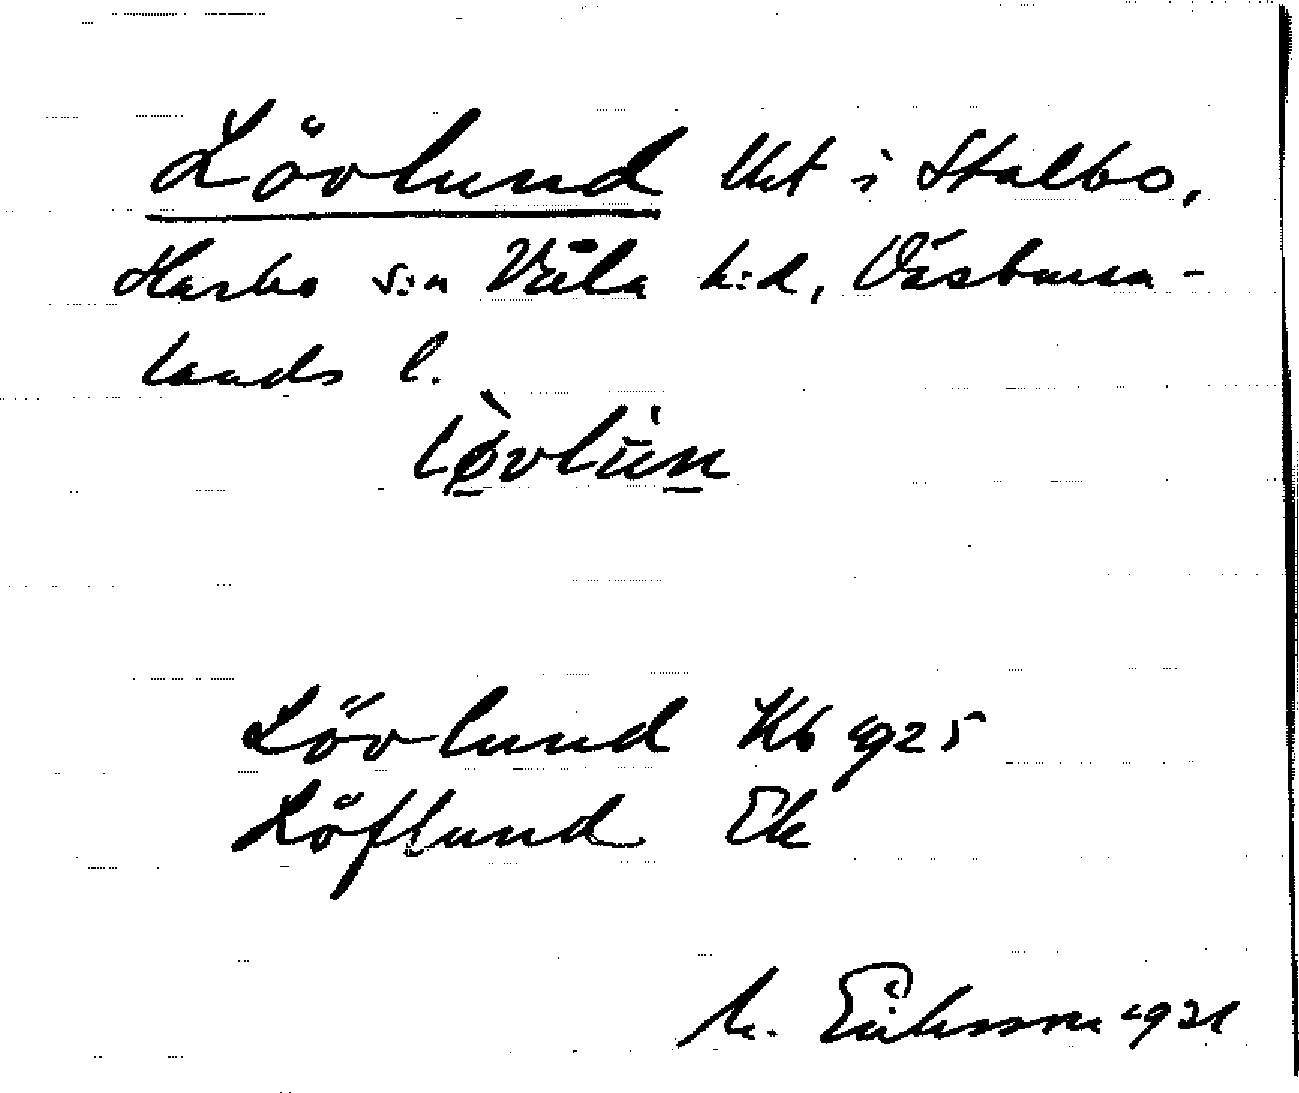 Lövlund Ut i Stalbo,
Harbo s:n Våla h:d, Västman-
lands l.
Lövlund Kb 1925
Löflund Ek
M. Eriksson 1931